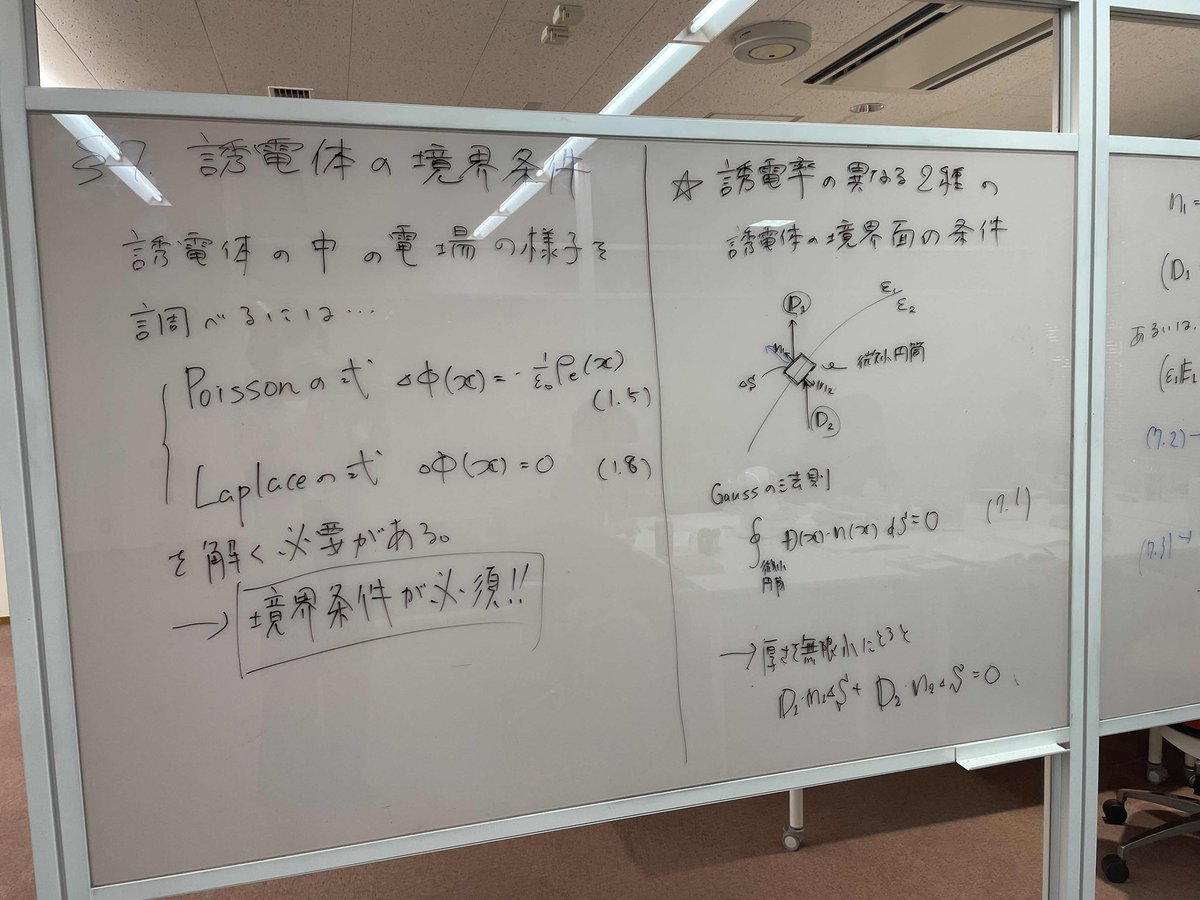 §7. 誘電体の境界条件
誘電体の中の電場の様子を
調べるには…
Poissonの式 △Φ(x)=-1/ε₀ρe(x)
(1.5)
Laplaceの式 △Φ(x)=0 (1.8)
を解く必要がある。
→ 境界条件が必須!!
☆ 誘電率の異なる2種の
誘電体の境界面の条件
D₁
ε₁
ε₂
n₁
微小円筒
△S
n₂
D₂
Gaussの法則
∮ D(x)·n(x) dS=0 (7.1)
微小
円筒
→厚さを無限小にとると
D₁·n₁△S+ D₂·n₂△S=0
n₁=
(D₁
あるいは、
(ε₁E₁
(7.2)→
(7.3)→